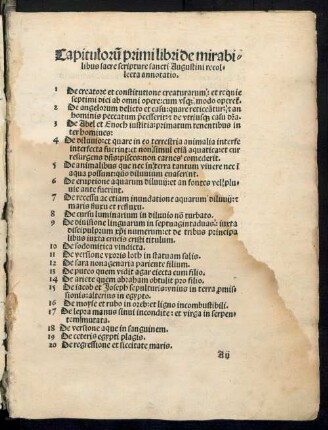 Capitulorū primi libri de mirabi-
libus sacre scripture sancti Augustini recol-
lecta annotatio.
1 De creatore et constitutione creaturarum: et reqie
septimi diei ab omni opere: cum vsqȝ modo operet᷑.
2 De angelorum delicto et casu: quare reticeatur: et an
hominis peccatum
3 De Abel et Enoch iusticia primatum tenentibus in
ter homines:
4 De diluuio: et quare in eo terrestria animalia interfe
interfecta fuerint: et non simul etiā aquatica: et cur
5 De animalibus que nec in terra tantum viuere nec ī
aqua possunt: quō diluuium euaserint.
6 De eruptione aquarum diluuij: et an fontes vel plu-
uie ante fuerint.
7 De recessu ac etiam inundatione aquarum diluuij: et
maris fluxu et refluxu.
8 De cursu luminarium in diluuio nō turbato.
9 De diuisione linguarum in septuagintaduas: iuxta
discipulorum xp̄i numerum: et de tribus principa
libus iuxta crucis christi titulum.
10 De sodomitica vindicta.
11 De versione vxoris loth in statuam salis.
12 De sara nonagenaria pariente filium.
13 De puteo quem vidit agar eiecta cum filio.
14 De ariete quem abraham obtulit pro filio.
15 De iacob et Joseph sepultura: vnius in terra pmis
sionis: alterius in egypto.
16 De moyse et rubo in oreb: et ligno incombustibili.
17 De lepra manus sinui incondite: et virga in serpen-
tem mutata.
18 De versione aque in sanguinem.
19 De ceteris egypti plagis.
20 De regressione et siccitate maris.
Aij